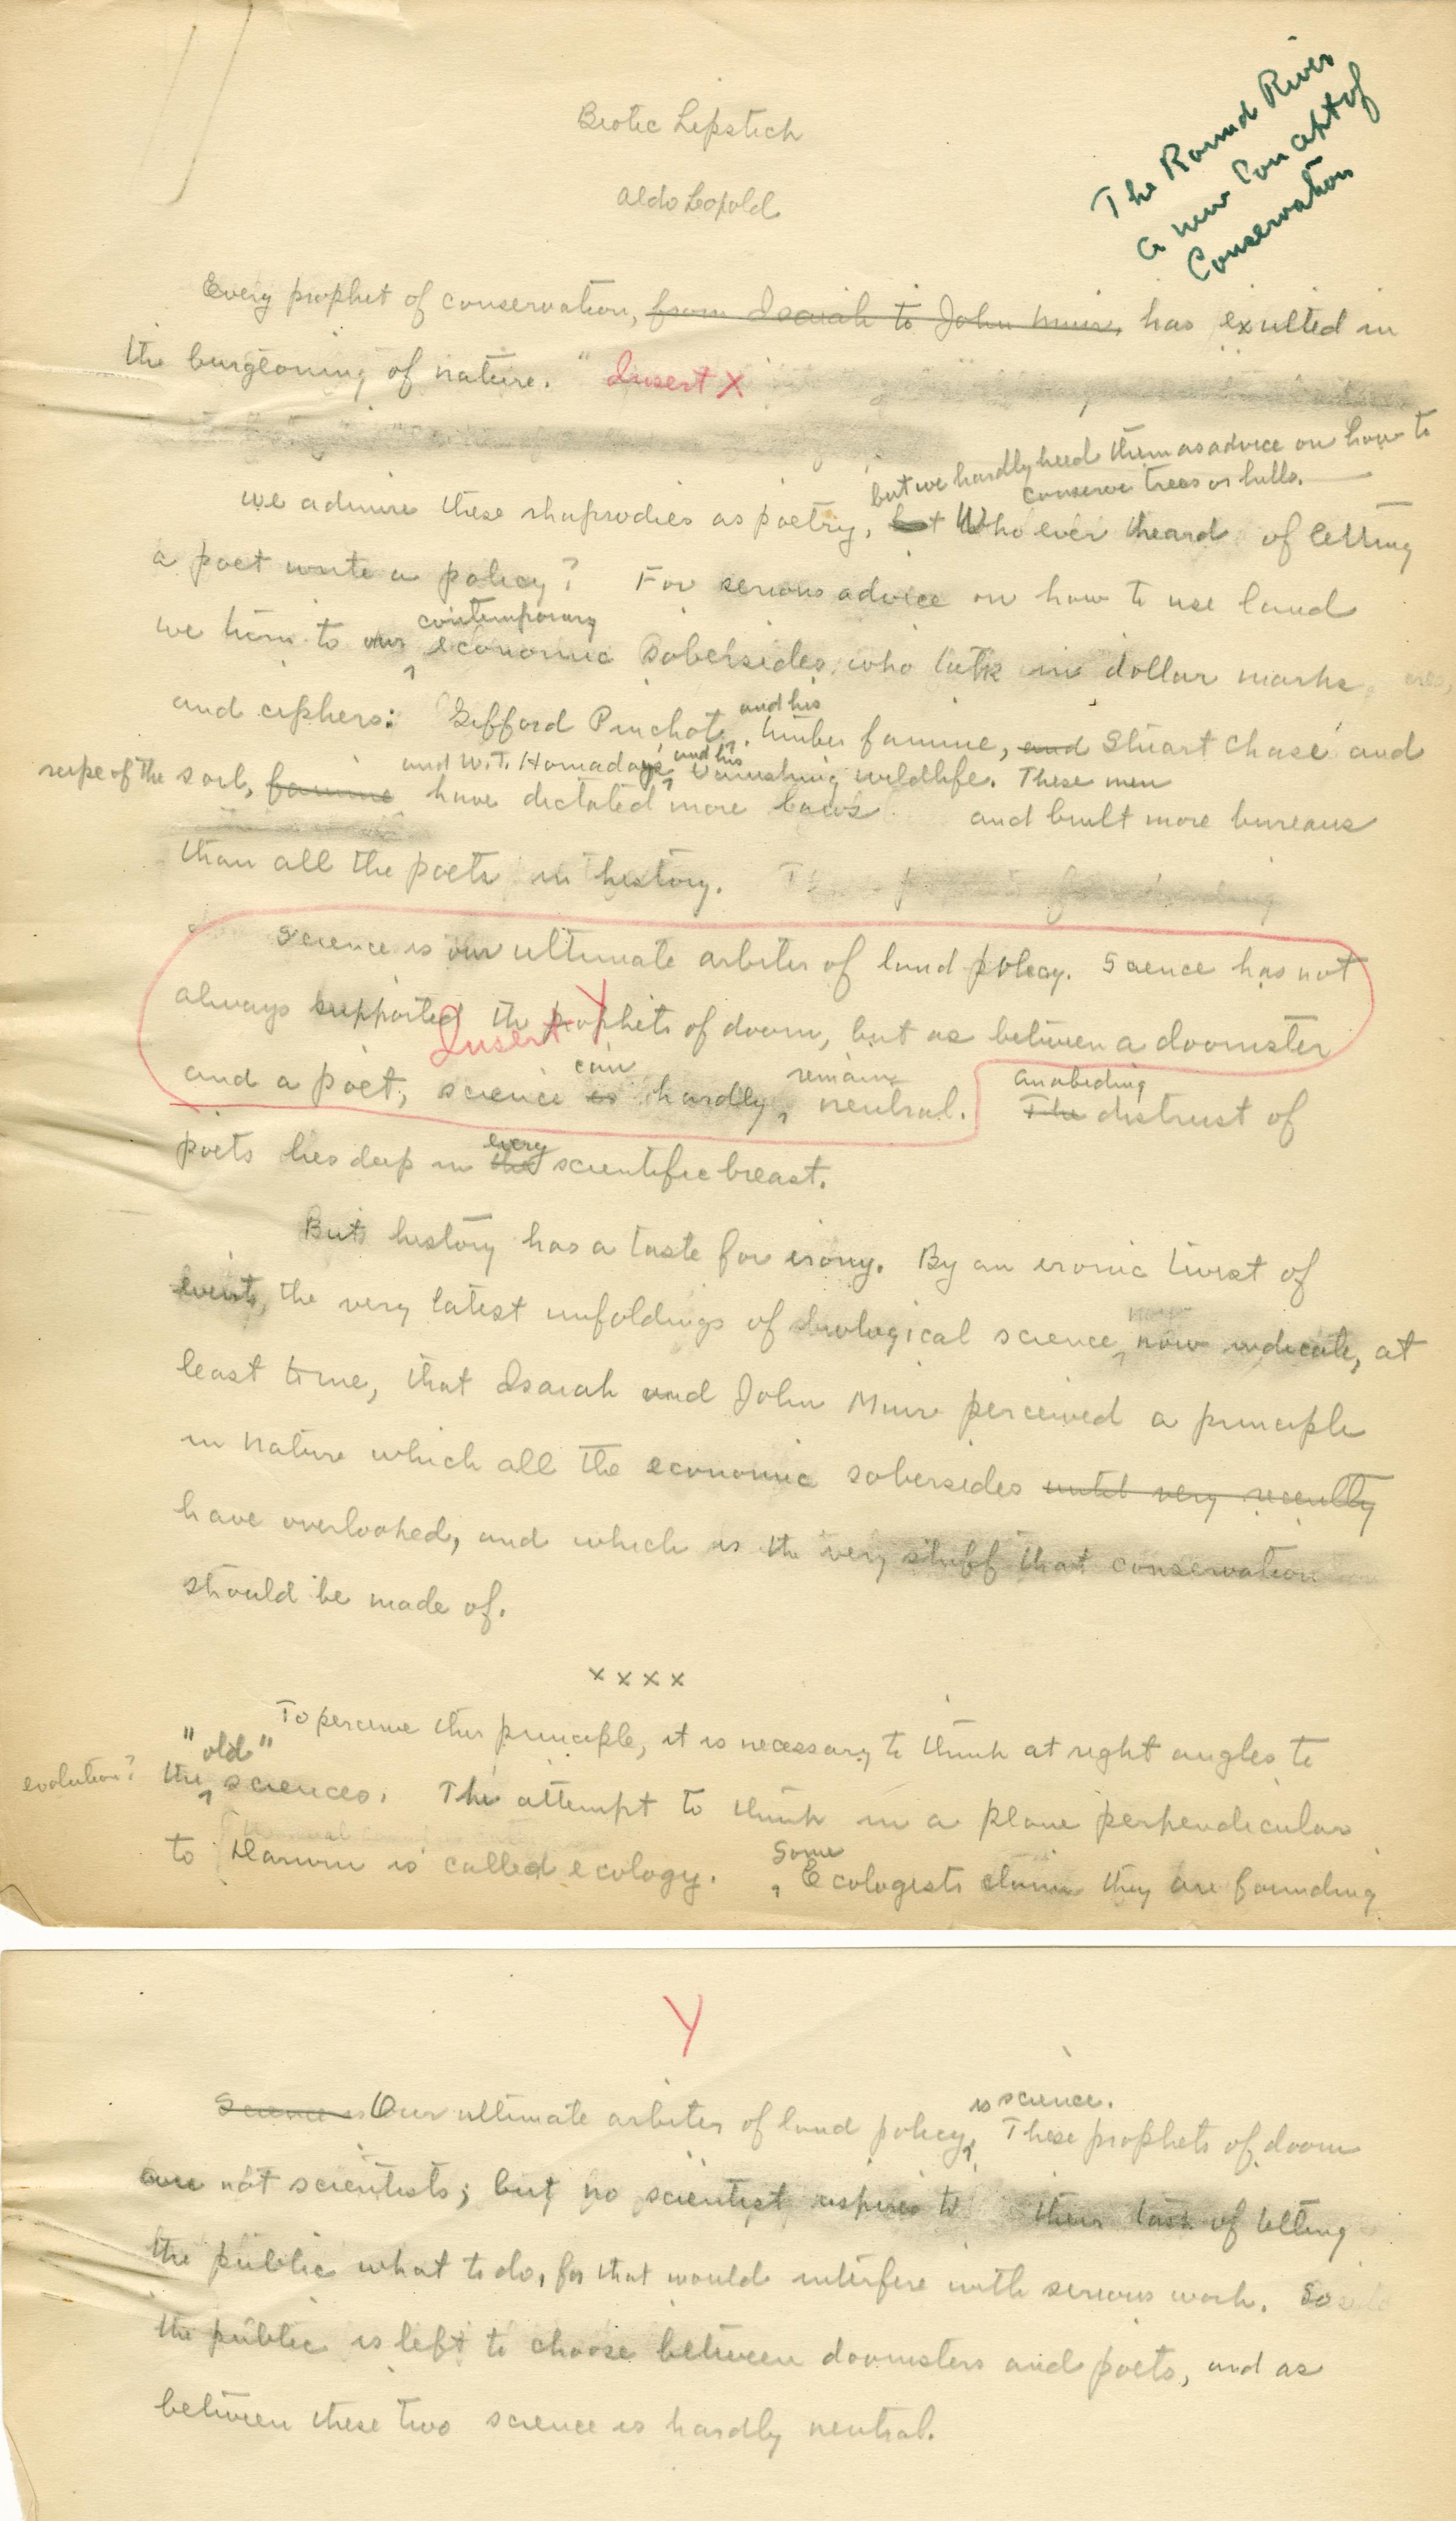 Biotic Lipstick
Aldo Leopold
The Round River
a new Concept of
Conservation
Every prophet of conservation, from Isaiah to John Muir, has exulted in
the burgeoning of nature. " Insert X
but we hardly heed them as advice on how to
conserve trees or hills.
We admire these rhapsodies as poetry, but Who ever heard of letting
a poet write a policy? For serious advice on how to use land
contemporary
we turn to our economic sobersides, who talk in dollar marks
and his
and ciphers: Gifford Pinchot, timber famine, and Stuart Chase and
and W.T. Hornaday, and his vanishing wildlife. These men
rape of the soil, famine have dictated more laws and built more bureaus
than all the poets in history.
Science is our ultimate arbiter of land policy. Science has not
always supported the prophets of doom, but as between a doomster
Insert Y
can remain an abiding
and a poet, science is hardly neutral. The distrust of
every
poets lies deep in the scientific breast.
But history has a taste for irony. By an ironic twist of
events, the very latest unfoldings of biological science, now indicate, at
least to me, that Isaiah and John Muir perceived a principle
in nature which all the economic sobersides until very recently
have overlooked, and which is the very stuff that conservation
should be made of.
x x x x
To perceive this principle, it is necessary to think at right angles to
"old"
evolution? the sciences. The attempt to think in a plane perpendicular
to Darwin is called ecology.
Some
Ecologists claim they are founding
Y
is science.
Science is Our ultimate arbiter of land policy. These prophets of doom
are not scientists; but no scientist aspires to their task of telling
the public what to do, for that would interfere with serious work. So
the public is left to choose between doomsters and poets, and as
between these two science is hardly neutral.